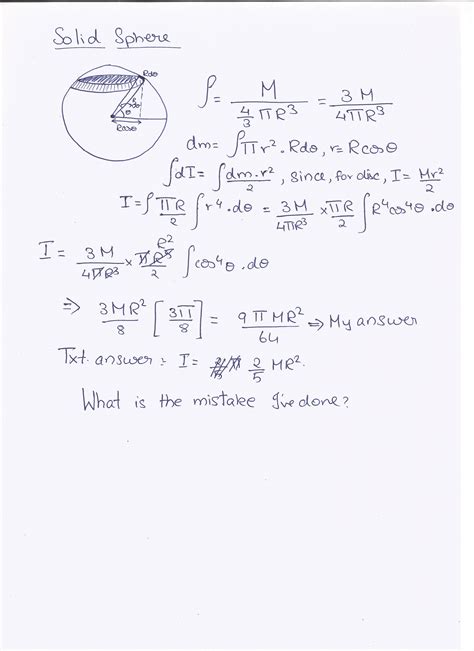 Solid Sphere
Rdθ
r
dθ
θ
Rcosθ
ρ = M / (4/3 πR³) = 3M / 4πR³
dm = ρπr². Rdθ, r = Rcosθ
∫dI = ∫ dm.r²/2, since, for disc, I = Mr²/2
I = ρ πR/2 ∫ r⁴. dθ = 3M/4πR³ × πR/2 ∫ R⁴cos⁴θ. dθ
I = 3M/4πR³ × πR⁵/2 R² ∫ cos⁴θ. dθ
⇒ 3MR²/8 [3π/8] = 9πMR²/64 ⇒ My answer
Txt. answer : I = 2/5 MR².
What is the mistake I've done?